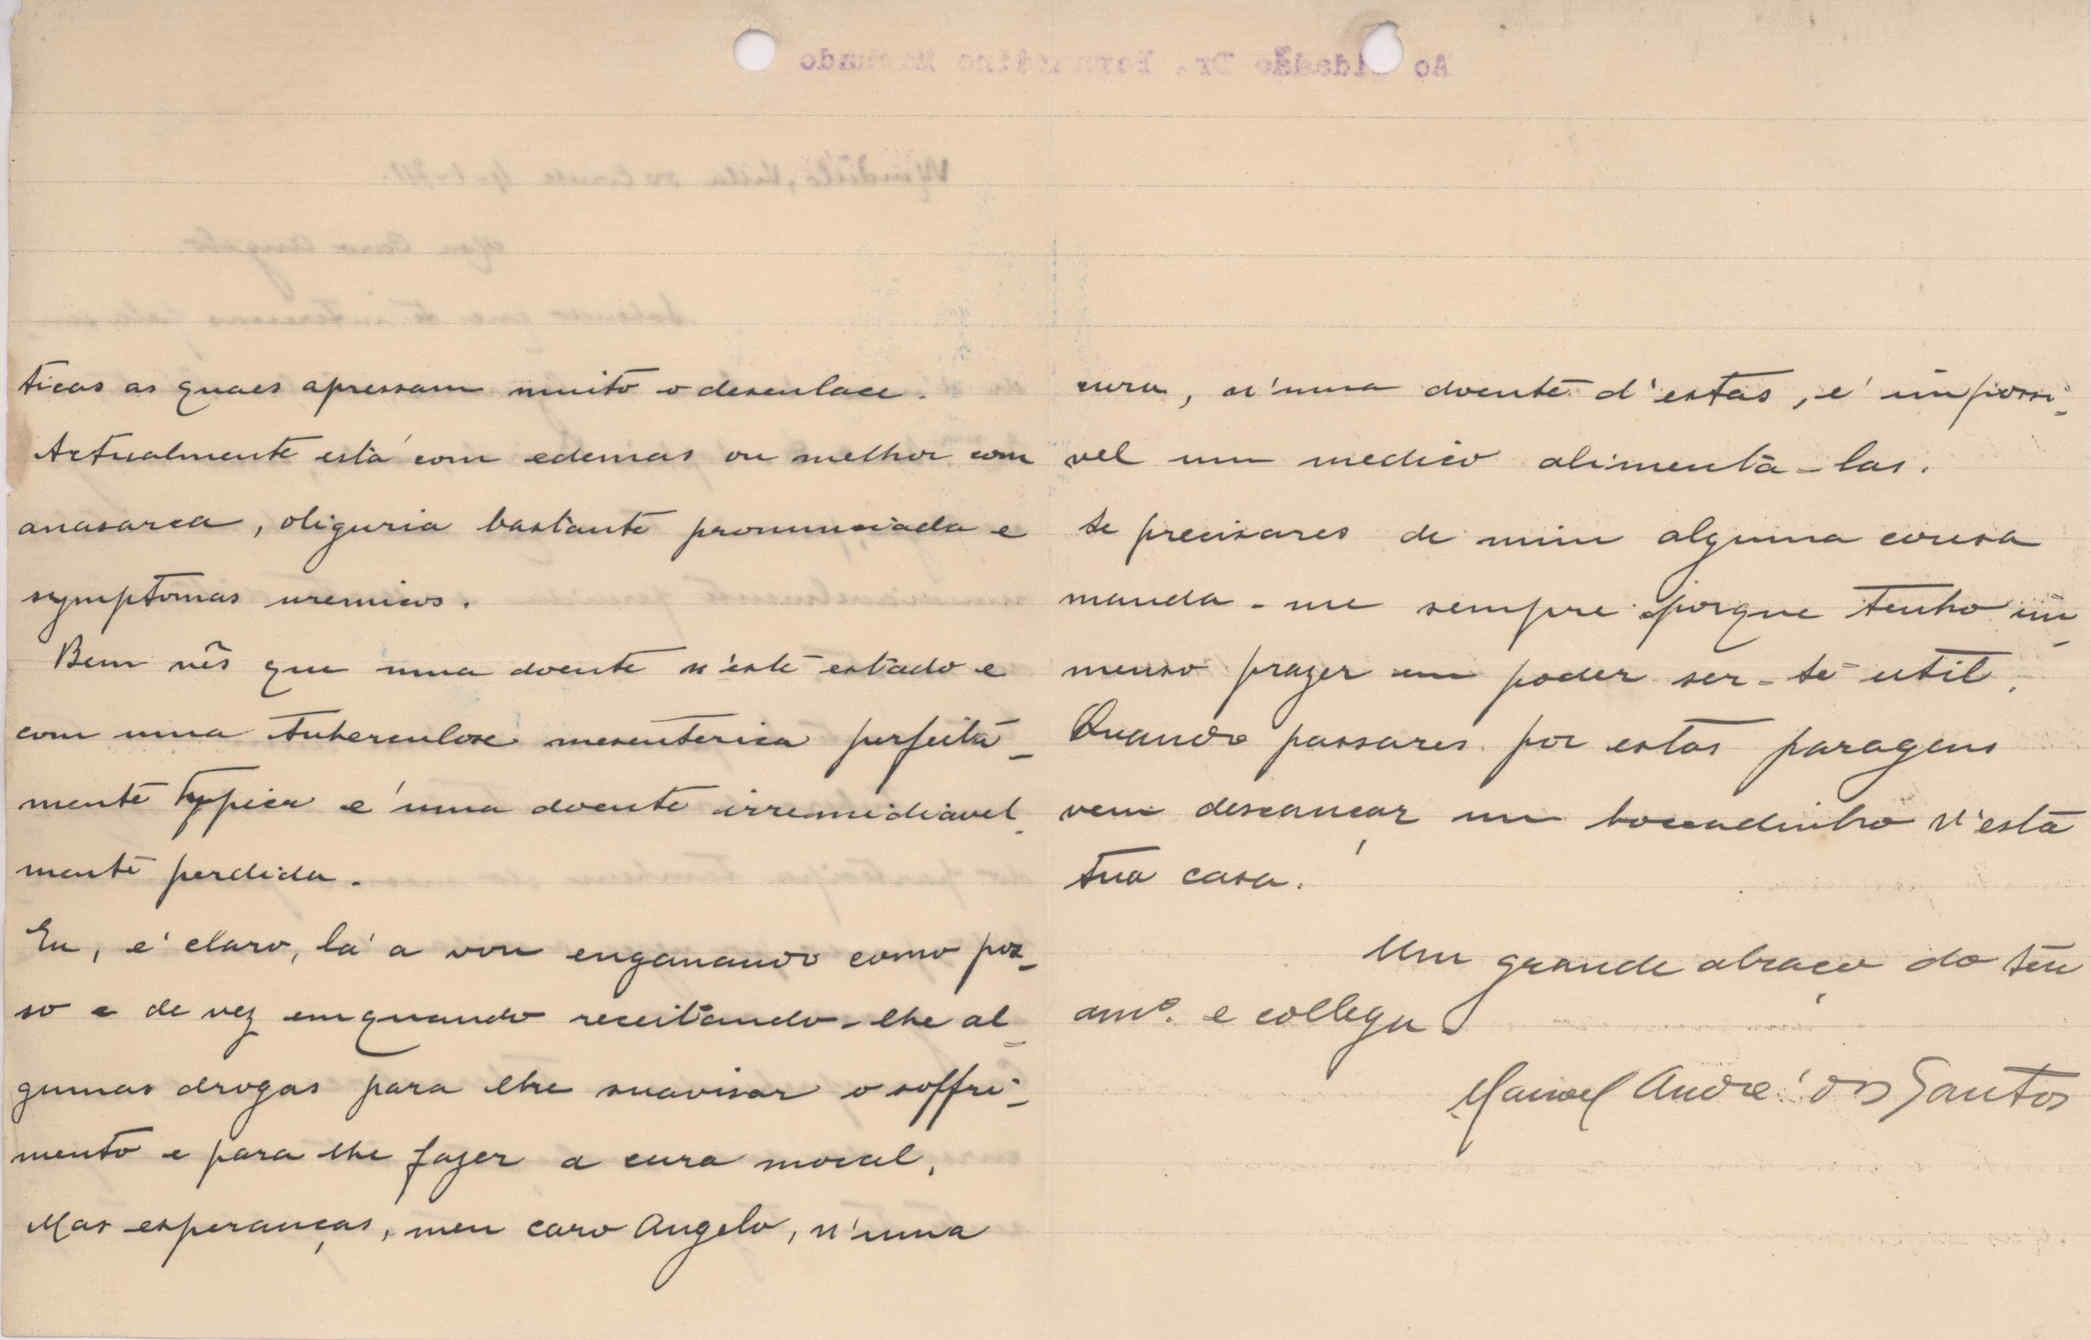 ticas as quaes apressam muito o desenlace.
Actualmente está com edemas ou melhor com
anasarca, oliguria bastante pronunciada e
symptomas uremicos.
Bem vês que uma doente n'este estado e
com uma tuberculose mesenterica perfeita-
mente typica é uma doente irremidiavel-
mente perdida.
Eu, é claro, lá a vou enganando como pos-
so e de vez emquando receitando-lhe al-
gumas drogas para lhe suavisar o soffri-
mento e para lhe fazer a cura moral.
Mas esperanças, meu caro Angelo, n'uma
cura, n'uma doente d'estas, é impossi-
vel um medico alimentá-las.
Se precisares de mim alguma cousa
manda-me sempre porque tenho im-
menso prazer em poder ser-te util.
Quando passares por estas paragens
vem descançar um bocadinho n'esta
tua casa.
Um grande abraço do teu
amº. e collega
Manoel André dos Santos